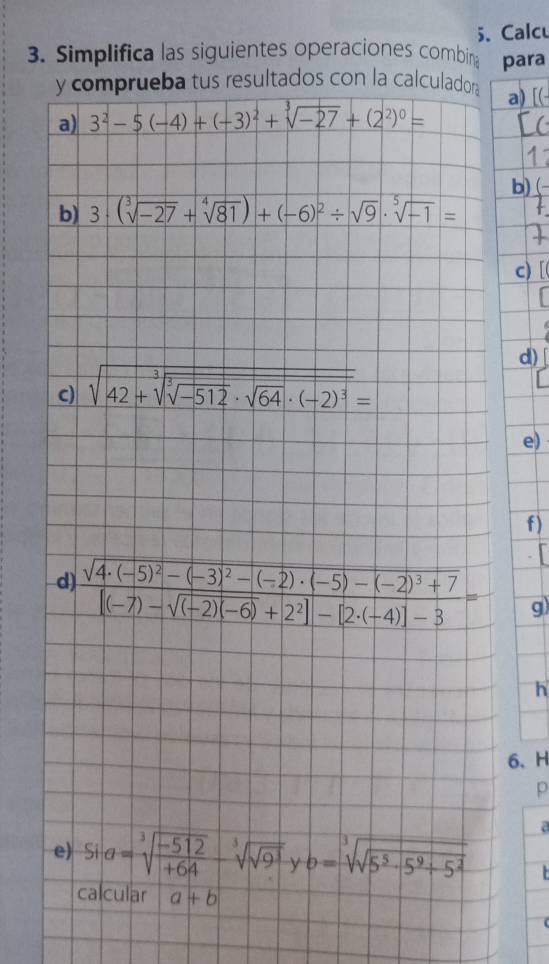 3. Simplifica las siguientes operaciones combin
y comprueba tus resultados con la calculador
a) 3² − 5 (−4) + (−3)² + ∛−27 + (2²)⁰ =
b) 3 · (∛−27 + ∜81) + (−6)² ÷ √9 · ⁵√−1 =
c) √(42 + ∛(∛−512 · √64 · (−2)³)) =
d) √(4·(−5)² − (−3)² − (−2)·(−5) − (−2)³ + 7) / ([(−7) − √((−2)(−6) + 2²)] − [2·(−4)] − 3) =
e) Si a = ∛(−512/+64) − ∛√9 y b = ∛√(5⁵ · 5⁹ ÷ 5²)
calcular a + b
5. Calcu
para
a) [(-
[(-
b) (-
c) [(
d) [
e)
f)
g)
h
6. H
p
a